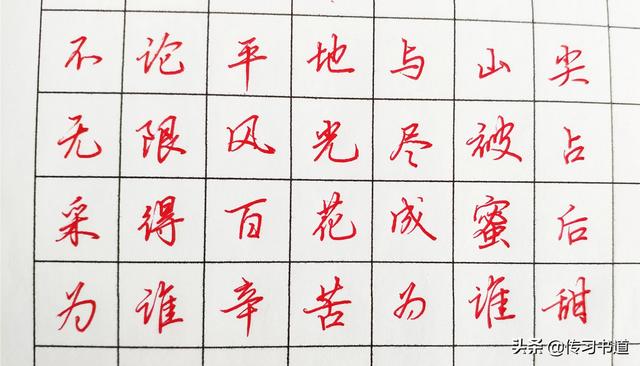 不论平地与山尖
无限风光尽被占
采得百花成蜜后
为谁辛苦为谁甜
头条 @传习书道